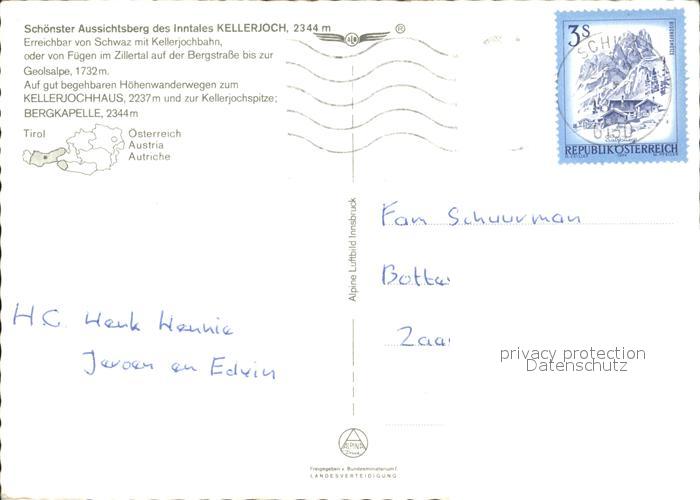 Schönster Aussichtsberg des Inntales KELLERJOCH, 2344 m
Erreichbar von Schwaz mit Kellerjochbahn,
oder von Fügen im Zillertal auf der Bergstraße bis zur
Geolsalpe, 1732m.
Auf gut begehbaren Höhenwanderwegen zum
KELLERJOCHHAUS, 2237m und zur Kellerjochspitze;
BERGKAPELLE, 2344m
Tirol
Österreich
Austria
Autriche
®
3S
REPUBLIK ÖSTERREICH
6130
Alpine Luftbild Innsbruck
Fam Schuurman
Botter
Zaa
H.G. Henk Hennie
Jeroen en Edwin
privacy protection
Datenschutz
ALPINA
Freigegeben v. Bundesministerium f.
LANDESVERTEIDIGUNG